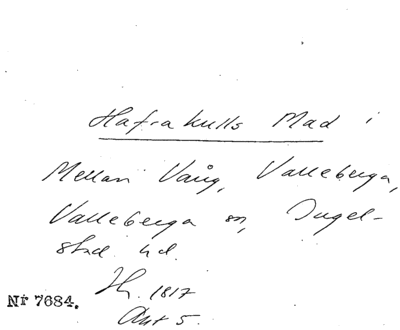 Hafrakulls Mad i
Mellan Vång, Valleberga,
Valleberga sn, Ingel-
stad hd.
1817
Nr 7684.
Akt 5.